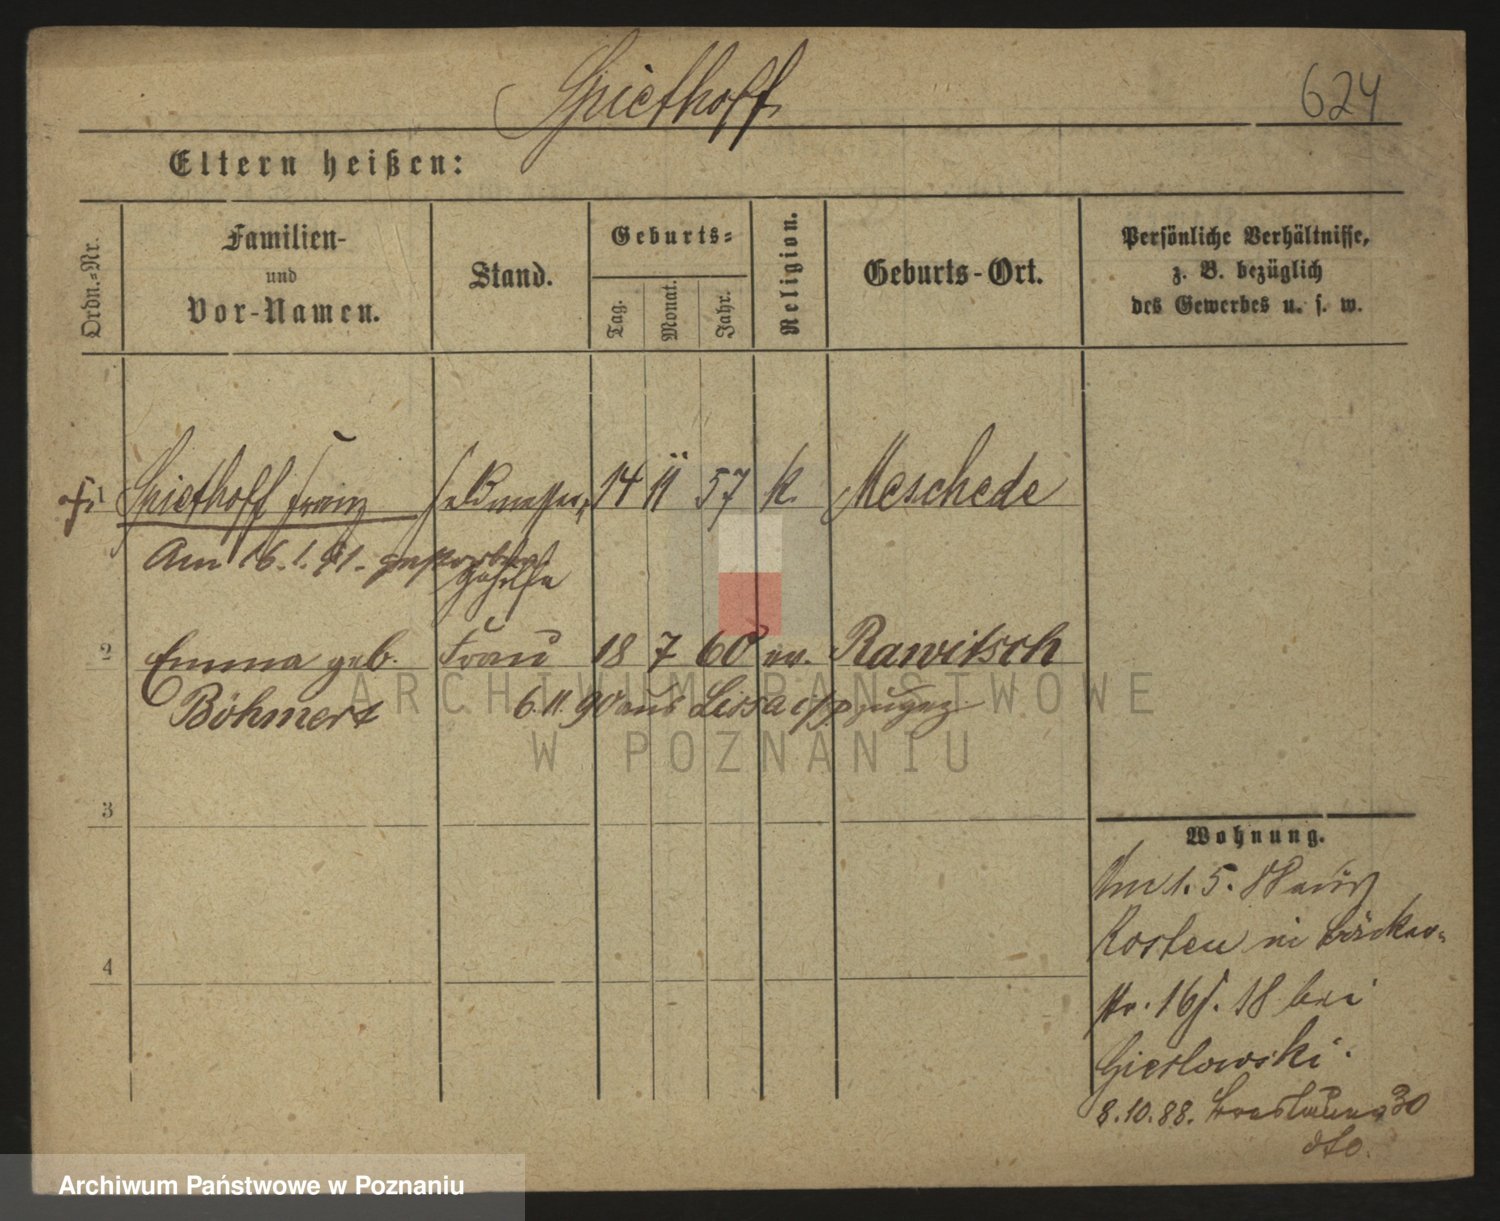 Spiethoff
624
Eltern heißen:
Ordn.-Nr.
Familien-
und
Vor-Namen.
Stand.
Geburts-
Tag.
Monat.
Jahr.
Religion.
Geburts-Ort.
Persönliche Verhältnisse,
z. B. bezüglich
des Gewerbes u. s. w.
1 Spiethoff Franz Feldmesser 14 11 57 k. Meschede
Am 16.1.91. gestorben
Gehilfe
2 Emma geb. Frau 18 7 60 ev. Rawitsch
Böhmert 6.11.90 aus Lissa
3
4
Wohnung.
Am 1.5.88 aus
Kosten in
str. 16/ 18 bei
Gierlowski.
8.10.88. 30
dto.
ARCHIWUM PAŃSTWOWE
W POZNANIU
Archiwum Państwowe w Poznaniu